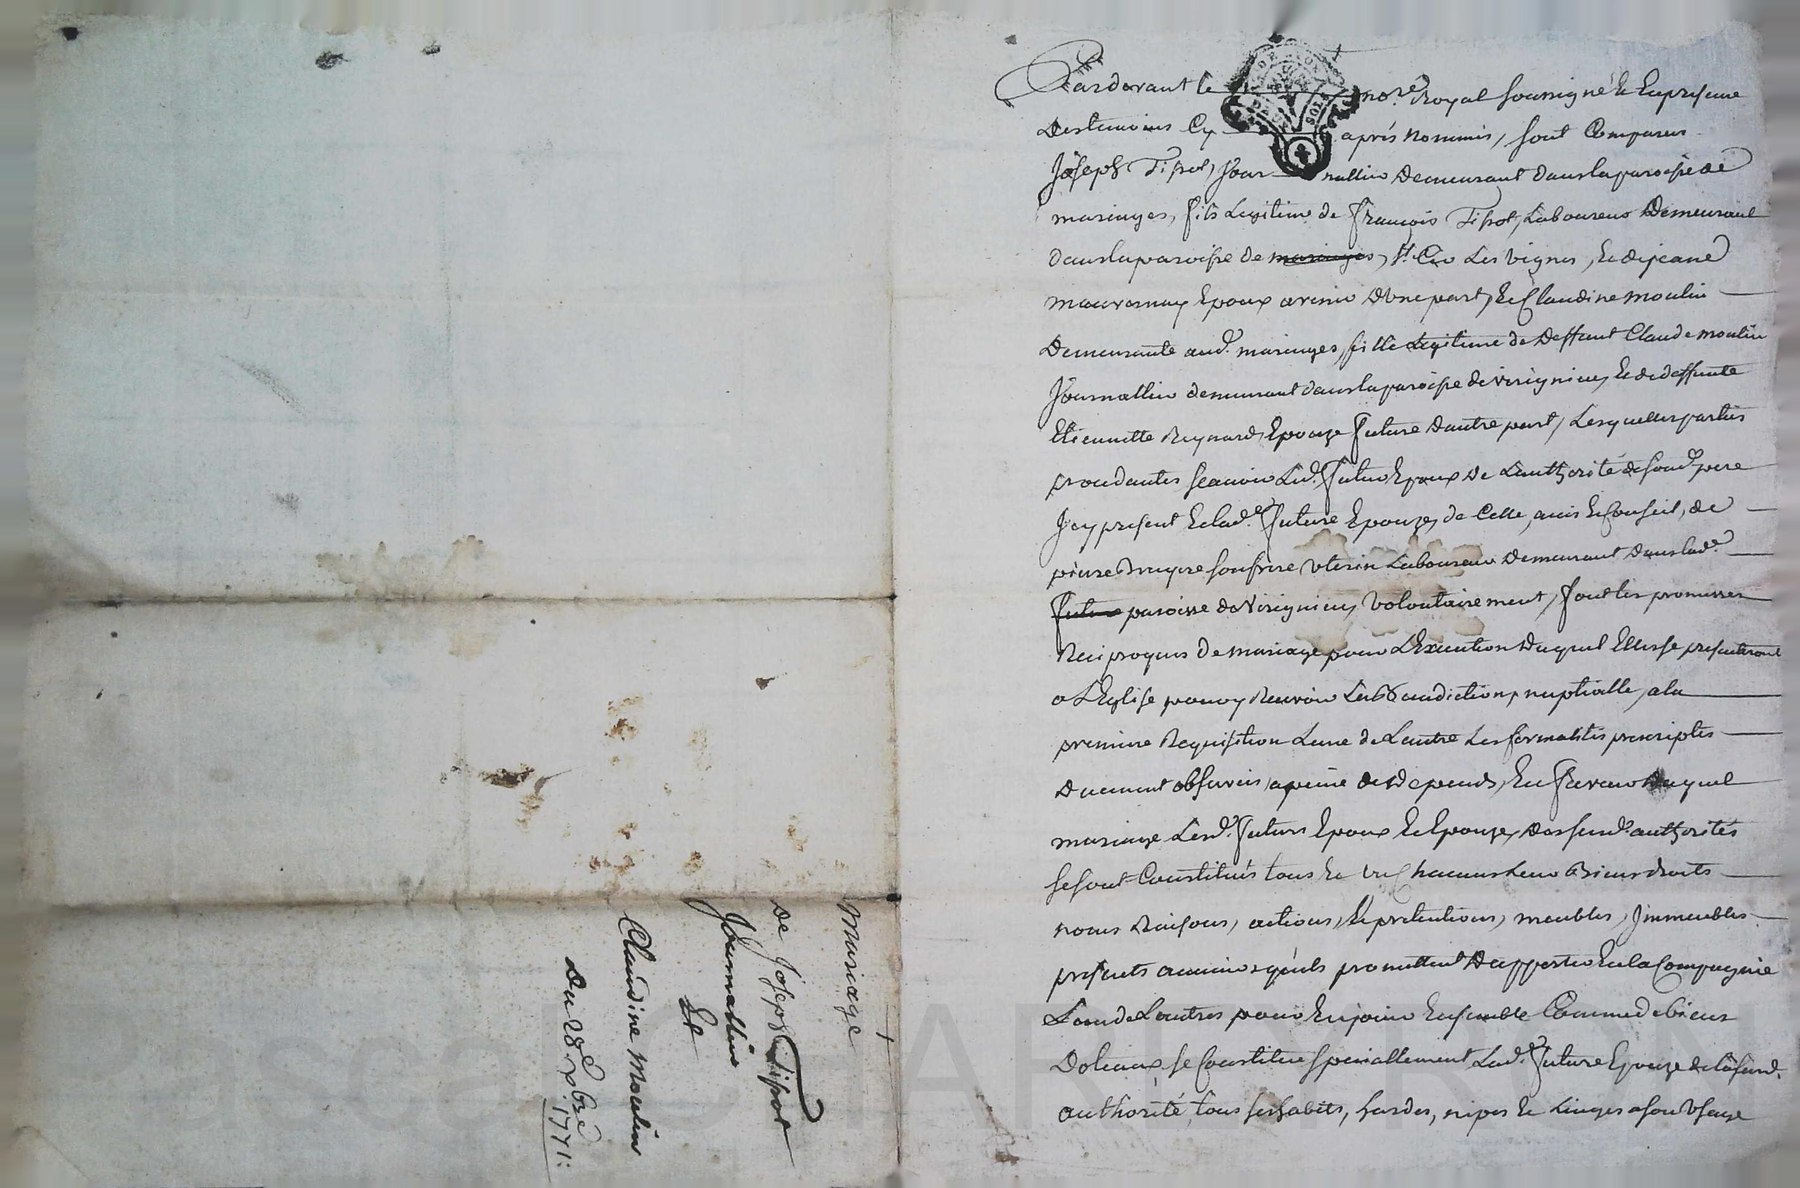 Mariage
de Joseph Tissot
Journallier
Et
Claudine Moulin
Du 28e xbre 1771:
Pardevant le nore. Royal soussigné & En presence
Des temoins Cy après nommés, sont Comparus
Joseph Tissot, Jour nallier Demeurant dans la paroisse de
maringes, fils Legitime de François Tissot, Laboureur Demeurant
dans la paroisse de maringes, St. Cir Les Vignes, & de jeane
Epoux avenir D'une part, & Claudine moulin
Demeurante aud. maringes, fille Legitime de Deffunt Claude moulin
Journallier demeurant dans la paroisse de virignieu, & de deffunte
Etiennette Reynard, Epouze future D'autre part, Lesquelles parties
procedantes scavoir Led. futur Epoux De L'authorité de sond. pere
Icy present & lad.e future Epouze, de Celle, avis & Conseil, de
pierre Bruyere son frere Uterin Laboureur Demeurant dans lad.e
future paroisse de Virignieu, Volontairement, font les promesses
Reciproques De mariage pour L'Execution Duquel Elles se presenteront
a L'Eglise pour y Recevoir La Benediction, nuptialle, a la
premiere Requisition L'une de L'autre Les formalités prescriptes
Duement observées, a peine de Depends, En faveur Duquel
mariage Lesd. futurs Epoux & Epouze, Des susd. authorités
se sont Constitués tous & un Chacuns Leur Biens droits
noms Raisons, actions, & pretentions, meubles, Immeubles
presents avenir qu'ils promettent D'apporter En la Compagnie
L'un de L'autres pour En jouir Ensemble Comme de biens
Dotaux, se Constitue speciallement Lad.e future Epouze de la susd.
authorité, tous ses habits, hardes, nipes & Linges a son Usage